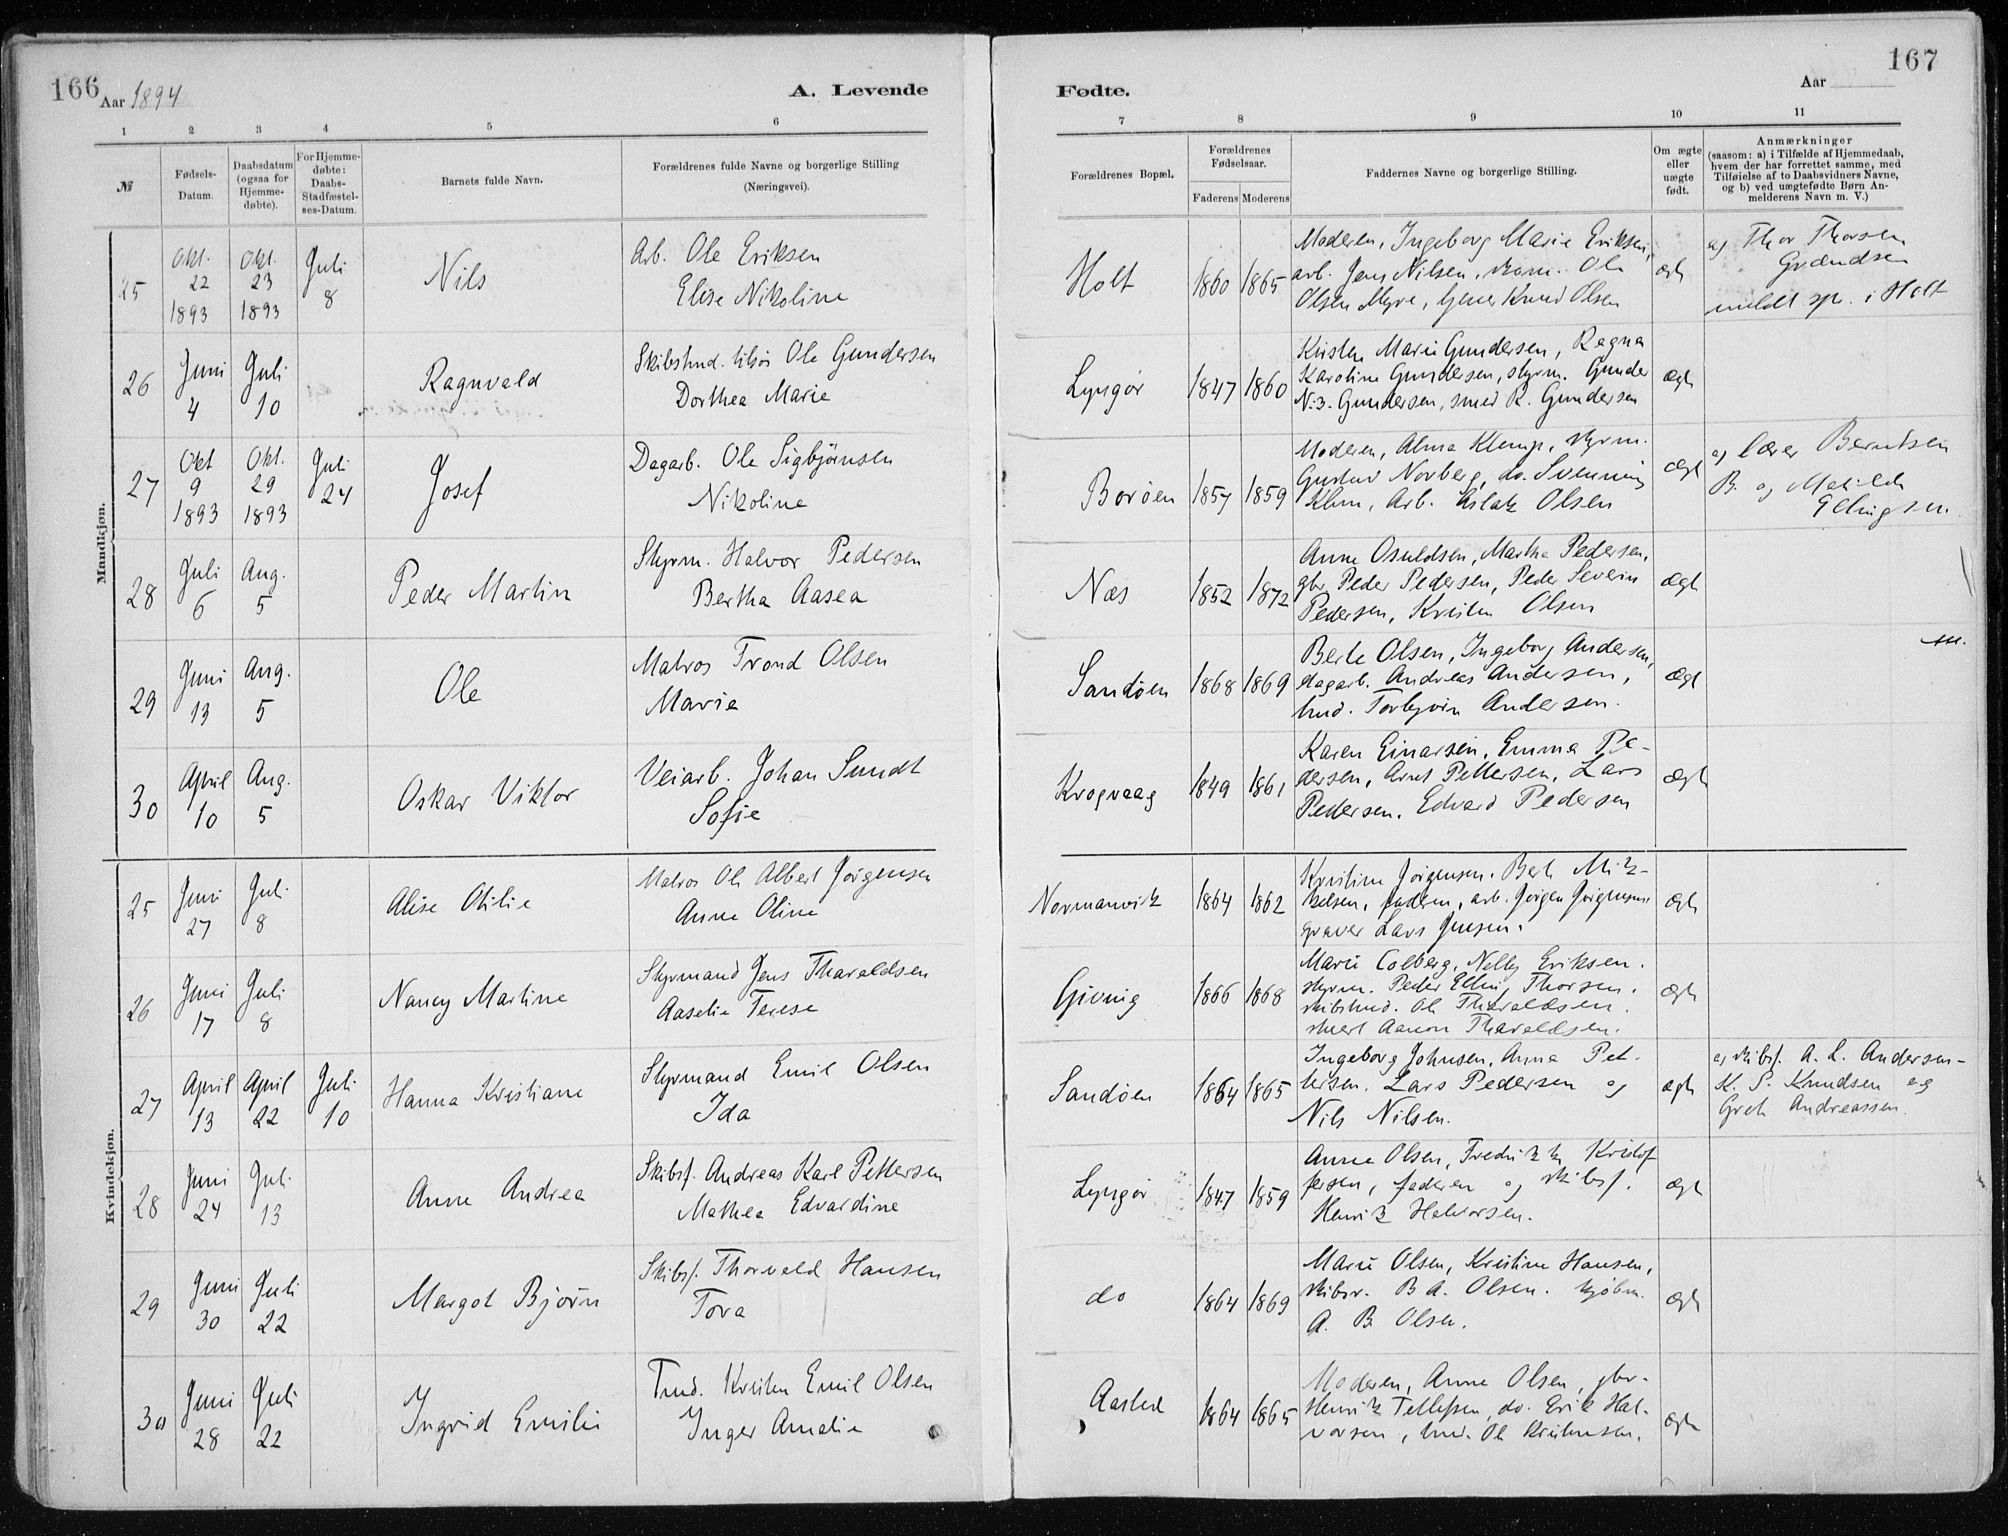 166
Aar 1894
A. Levende
Fødte.
Aar
167
1 2 3 4 5 6 7 8 9 10 11
№
Fødsels-
Datum.
Daabsdatum
(ogsaa for
Hjemme-
døbte).
For Hjemme-
døbte:
Daabs-
Stadfæstel-
ses-Datum.
Barnets fulde Navn.
Forældrenes fulde Navne og borgerlige Stilling
(Næringsvei).
Forældrenes Bopæl.
Forældrenes
Fødselsaar.
Faderens Moderens
Faddernes Navne og borgerlige Stilling.
Om ægte
eller
uægte
født.
Anmærkninger
(saasom: a) i Tilfælde af Hjemmedaab,
hvem der har forrettet samme, med
Tilføielse af to Daabsvidners Navne,
og b) ved uægtefødte Børn An-
melderens Navn m. V.)
Mandkjøn.
25
Okt.
22
1893
Okt.
23
1893
Juli
8
Nils
Arb. Ole Eriksen
Elise Nikoline
Holt
1860 1865
Moderen, Ingeborg Marie Eriksen,
arb. Jens Nilsen, Ole
Olsen Myre, Knud Olsen
ægte
a) Thor Thorsen
Grændsen
meldt sp. i Holt
26
Juni
4
Juli
10
Ragnvald
Skibstmd. Ole Gundersen
Dorthea Marie
Lyngør
1847 1860
Kirsten Marie Gundersen, Ragna
Karoline Gundersen, styrm. Gunder
N. B. Gundersen, smed R. Gundersen
ægte
27
Okt
9
1893
Okt.
29
1893
Juli
24
Josef
Dagarb. Ole Sigbjørnsen
Nikoline
Borøen
1857 1859
Moderen, Alma Klemp, styrm.
Gustav Norberg, do. Svenning
Klem, Arb. Aslak Olsen
ægte
a) lærer Berntsen
B. og Matilde
Ellingsen
28
Juli
6
Aug.
5
Peder Martin
Styrm. Halvor Pedersen
Bertha Aasea
Næs
1852 1872
Anne Osuldsen, Martha Pedersen,
gbr Peder Pedersen, Peder Severin
Pedersen, Kristen Olsen
ægte
29
Juni
13
Aug.
5
Ole
Matros Trond Olsen
Marie
Sandøen
1868 1869
Berte Olsen, Ingeborg Andersen,
dagarb. Andreas Andersen,
tmd. Torbjørn Andersen.
ægte
30
April
10
Aug.
5
Oskar Viktor
Veiarb. Johan Sundt
Sofie
Krogvaag
1849 1861
Karen Einarsen, Emma Pe-
dersen, Arnt Pettersen, Lars
Pedersen, Edvard Pedersen
ægte
Kvindekjøn.
25
Juni
27
Juli
8
Alise Otilie
Matros Ole Albert Jørgensen
Anne Oline
Normanvik
1864 1862
Kristine Jørgensen. Berte Mik-
kelsen, faderen, arb. Jørgen Jørgensen
graver Lars Jensen.
ægte
26
Juni
17
Juli
8
Nancy Martine
Styrmand Jens Tharaldsen
Aaselie Terese
Gjeving
1866 1868
Marie Colberg, Nelly Eriksen.
styrm. Peder Elling Thorsen.
skibstmd. Ole Tharaldsen.
Aanon Tharaldsen.
ægte
27
April
13
April
22
Juli
10
Hanna Kristiane
Styrmand Emil Olsen
Ida
Sandøen
1864 1865
Ingeborg Johnsen, Anna Pet-
tersen. Lars Pedersen og
Nils Nilsen.
ægte
a) skibsf. A. L. Andersen-
K. S. Knudsen og
Grete Andreassen.
28
Juni
24
Juli
13
Anne Andrea
Skibsf. Andreas Karl Pettersen
Mathea Edvardine
Lyngør
1847 1859
Anne Olsen, Fredrikke Kristof
fersen, faderen og skibsf.
Henrik Halvorsen.
ægte
29
Juni
30
Juli
22
Margot Bjørn
Skibsf. Thorvald Hansen
Tora
do
1864 1869
Marie Olsen, Kristine Hansen,
skibsr. B. A. Olsen. kjøbm.
A. B. Olsen.
ægte
30
Juni
28
Juli
22
Ingrid Emilie
Tmd. Kristen Emil Olsen
Inger Amalie
Aasted
1864 1865
Moderen, Anne Olsen, gbr-
Henrik Tellefsen, do. Erik Hal-
vorsen, tmd. Ole Kristensen.
ægte